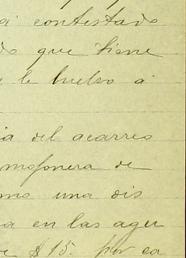 a contestado
do que tiene
e le vuelvo a
ia del acarreo
mosonera de
omo una dis
a en las agu
e $15. por ca